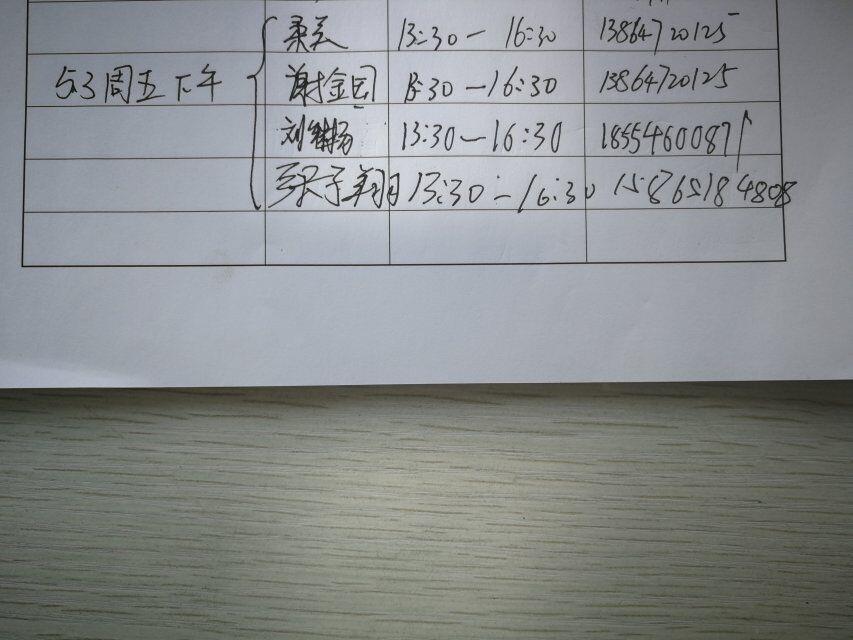 13:30-16:30 13864720125
5.3周五下午 谢金园 13:30-16:30 13864720125
刘 13:30-16:30 18554600871
子翔 13:30-16:30 15865184808